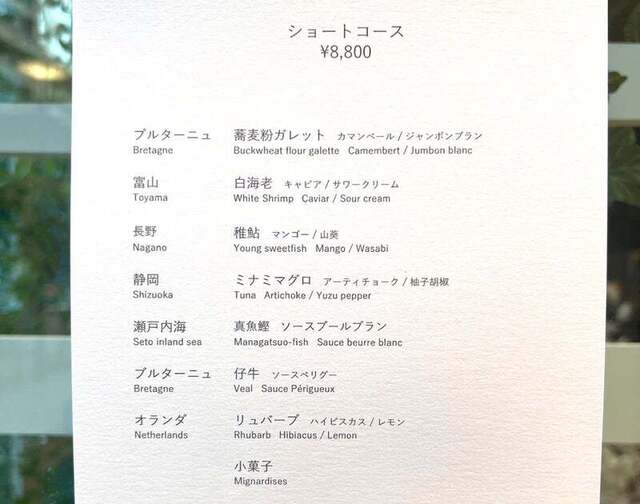 ショートコース
¥8,800
ブルターニュ 蕎麦粉ガレット カマンベール / ジャンボンブラン
Bretagne Buckwheat flour galette Camembert / Jumbon blanc
富山 白海老 キャビア / サワークリーム
Toyama White Shrimp Caviar / Sour cream
長野 稚鮎 マンゴー / 山葵
Nagano Young sweetfish Mango / Wasabi
静岡 ミナミマグロ アーティチョーク / 柚子胡椒
Shizuoka Tuna Artichoke / Yuzu pepper
瀬戸内海 真魚鰹 ソースブールブラン
Seto inland sea Managatsuo-fish Sauce beurre blanc
ブルターニュ 仔牛 ソースペリグー
Bretagne Veal Sauce Périgueux
オランダ リュバーブ ハイビスカス / レモン
Netherlands Rhubarb Hibiacus / Lemon
小菓子
Mignardises